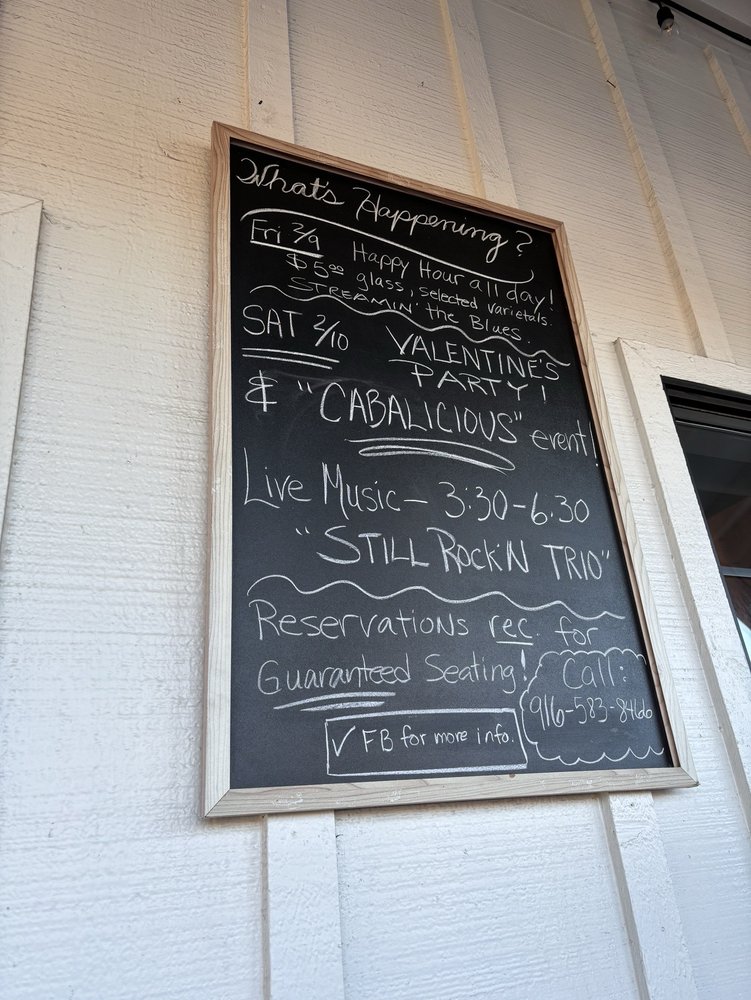 What's Happening?
Fri 2/9 Happy Hour all day!
$5.00 glass, selected varietals.
STREAMIN' the Blues.
SAT 2/10 VALENTINE'S
PARTY!
& "CABALICIOUS" event!
Live Music - 3:30-6:30
"STILL ROCK'N TRIO"
Reservations rec. for
Guaranteed Seating!
Call:
916-583-8466
✓ FB for more info.